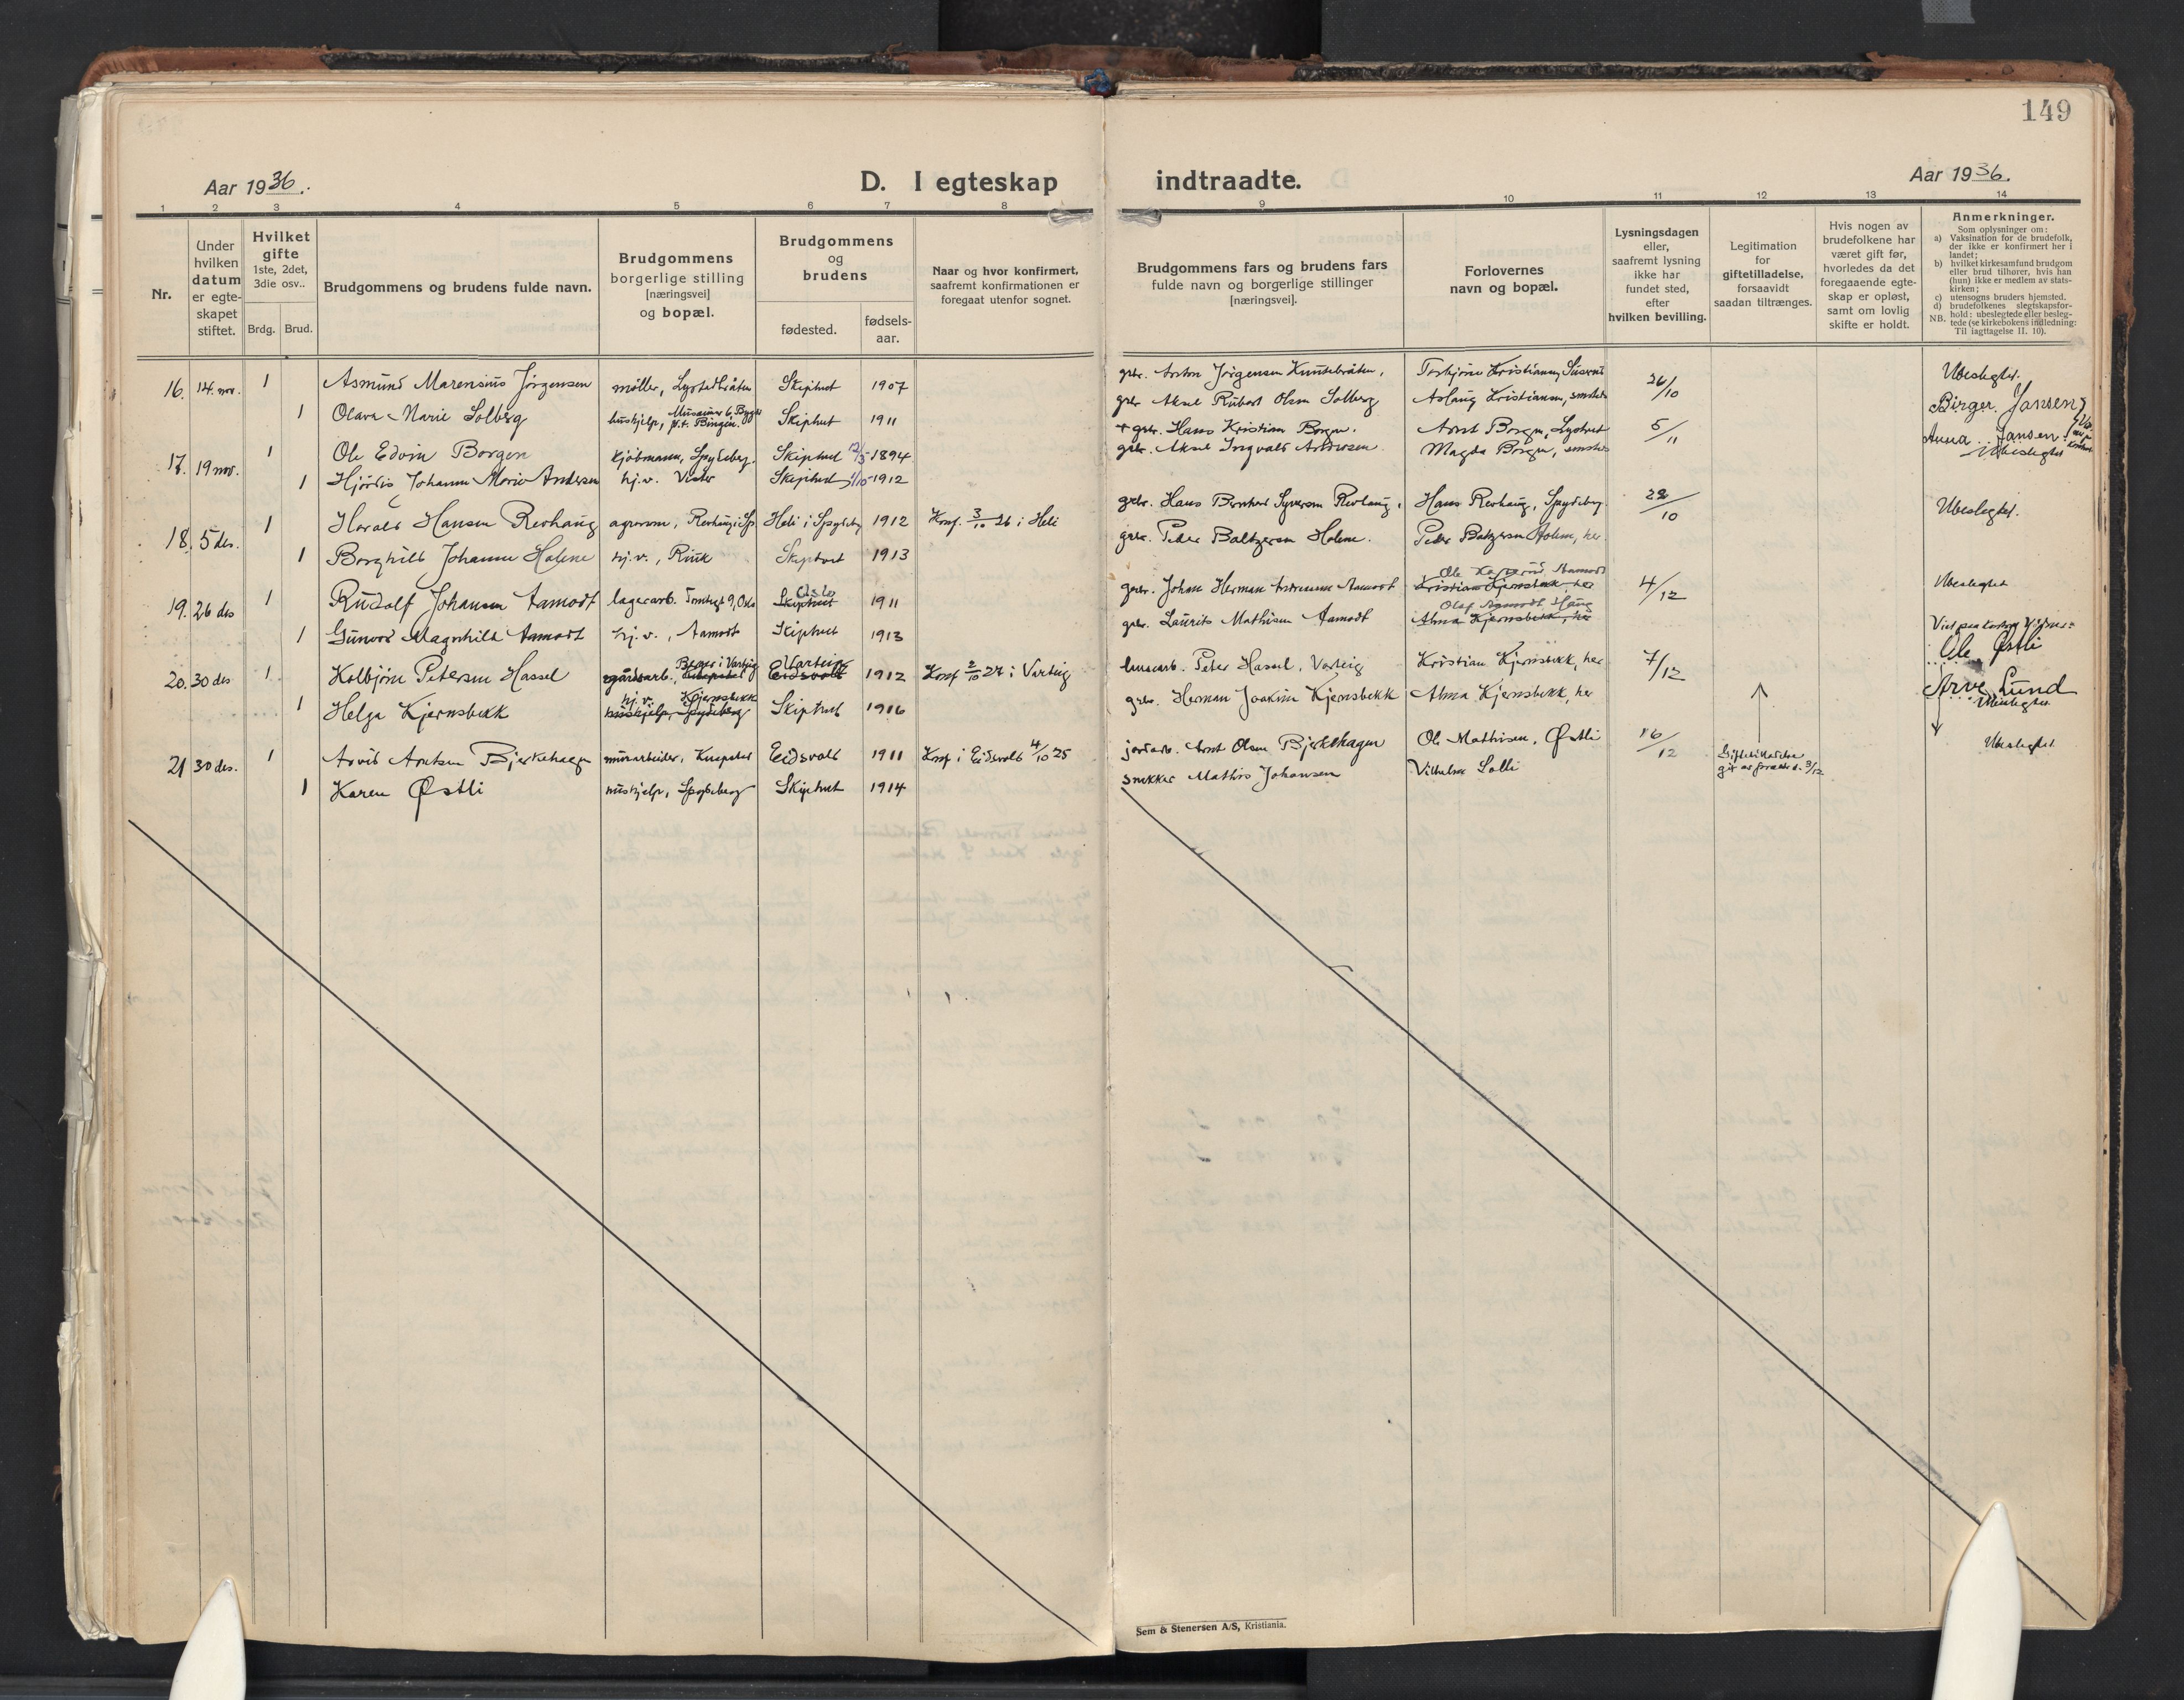 149
Aar 1936.
D. I egteskap indtraadte.
Aar 1936.
1 2 3 4 5 6 7 8 9 10 11 12 13 14
Nr.
Under hvilken datum er egte-skapet stiftet.
Hvilket gifte 1ste, 2det, 3die osv..
Brdg. Brud.
Brudgommens og brudens fulde navn.
Brudgommens borgerlige stilling [næringsvei] og bopæl.
Brudgommens og brudens
fødested.
fødsels-aar.
Naar og hvor konfirmert, saafremt konfirmationen er foregaat utenfor sognet.
Brudgommens fars og brudens fars fulde navn og borgerlige stillinger [næringsvei].
Forlovernes navn og bopæl.
Lysningsdagen eller, saafremt lysning ikke har fundet sted, efter hvilken bevilling.
Legitimation for giftetilladelse, forsaavidt saadan tiltrænges.
Hvis nogen av brudefolkene har været gift før, hvorledes da det foregaaende egte-skap er opløst, samt om lovlig skifte er holdt.
Anmerkninger.
Som oplysninger om:
a) Vaksination for de brudefolk, der ikke er konfirmert her i landet;
b) hvilket kirkesamfund brudgom eller brud tilhører, hvis han (hun) ikke er medlem av stats-kirken;
c) utensogns bruders hjemsted.
d) brudefolkenes slegtskapsfor-hold: ubeslegtede eller besleg-tede (se kirkebokens indledning: Til iagttagelse II. 10).
NB.
16. 14. nov. 1 Asmund Marensius Jörgensen möller, Lystedbråten Skiptvet 1907 gbr. Anton Jörgensen Knutsbråten, Torbjörn Kristiansen, 26/10 Ubeslegtet.
1 Olava Marie Solberg hushjelp, p.t. Bingen. Skiptvet 1911 gbr Aksel Robert Olsen Solberg Aslaug Kristiansen, smsteds Birger Jansen
17. 19 nov. 1 Ole Edvin Borgen kjöbmann, Spydeberg. Skiptvet 1894 + gbr. Hans Kristian Borgen. Arnt Borgen, Lystvet 5/11 Anna Jansen
1 Hjördis Johanne Marie Andersen hj.v. Vister Skiptvet 1912 gbr. Aksel Ingvald Andersen Magda Borgen, smsteds Ubeslegtet
18. 5 des. 1 Harald Hansen Revhaug agronom, Revhaug i Sp. Heli i Spydeb. 1912 Konf. 3/10 26 i Heli gbr. Hans Bernhard Syversen Revhaug, Hans Revhaug, Spydeberg 28/10 Ubeslegtet.
1 Borghild Johanne Holene hj.v., Rud Skiptvet 1913 gbr. Peder Baltzersen Holene. Peder Baltzersen Holene, her
19. 26 des 1 Rudolf Johansen Aamodt lagerarb. Tomtegt 9, Oslo Skiptvet Oslo 1911 gbr. Johan Herman Andreassen Aamodt Kristian Kjernsbekk, her Ole Aamodt 4/12 Ubeslegtet
1 Gunvor Magnhild Aamodt hj.v., Aamodt Skiptvet 1913 gbr. Laurits Mathisen Aamodt Alma Kjernsbekk, her Olaf Aamodt, Haug
20. 30 des 1 Kolbjörn Petersen Hassel gårdsarb. i Varteig Eidsvold Varteig 1912 Konf 2/10 27 i Varteig Peter Hassel, Varteig Kristian Kjernsbekk, her 7/12 Ole Østli
1 Helga Kjernsbekk hushjelp, Spydeberg hj.v. Kjernsbekk Skiptvet 1916 gbr. Herman Joakim Kjernsbekk Alma Kjernsbekk, her Arve Lund
Ubeslegtet
21 30 des. 1 Arvid Arntsen Bjerkehagen murarbeider, Knapstad Eidsvold 1911 Konf i Eidsvold 4/10 25 jordarb. Arnt Olsen Bjerkehagen Ole Mathisen, Østli 16/12 Ubeslegtet
1 Karen Østli hushjelp, Spydeberg Skiptvet 1914 snekker Mathis Johansen Vilhelm Lolli
Sem & Stenersen A/S, Kristiania.